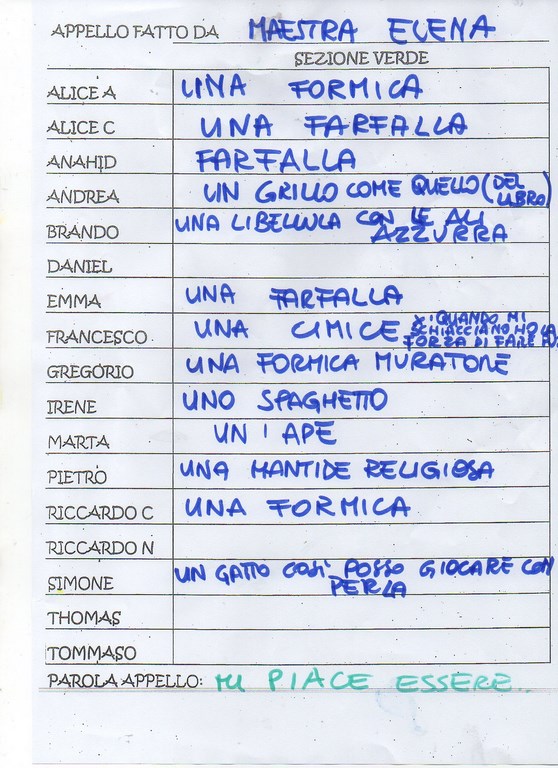 APPELLO FATTO DA MAESTRA ELENA
SEZIONE VERDE
ALICE A UNA FORMICA
ALICE C UNA FARFALLA
ANAHID FARFALLA
ANDREA UN GRILLO COME QUELLO (DEL LIBRO)
BRANDO UNA LIBELLULA CON LE ALI AZZURRA
DANIEL
EMMA UNA FARFALLA
FRANCESCO UNA CIMICE X I QUANDO MI SCHIACCIANO HO LA FORZA DI FARE
GREGORIO UNA FORMICA MURATONE
IRENE UNO SPAGHETTO
MARTA UN' APE
PIETRO UNA MANTIDE RELIGIOSA
RICCARDO C UNA FORMICA
RICCARDO N
SIMONE UN GATTO COSÌ POSSO GIOCARE CON PERLA
THOMAS
TOMMASO
PAROLA APPELLO: MI PIACE ESSERE..